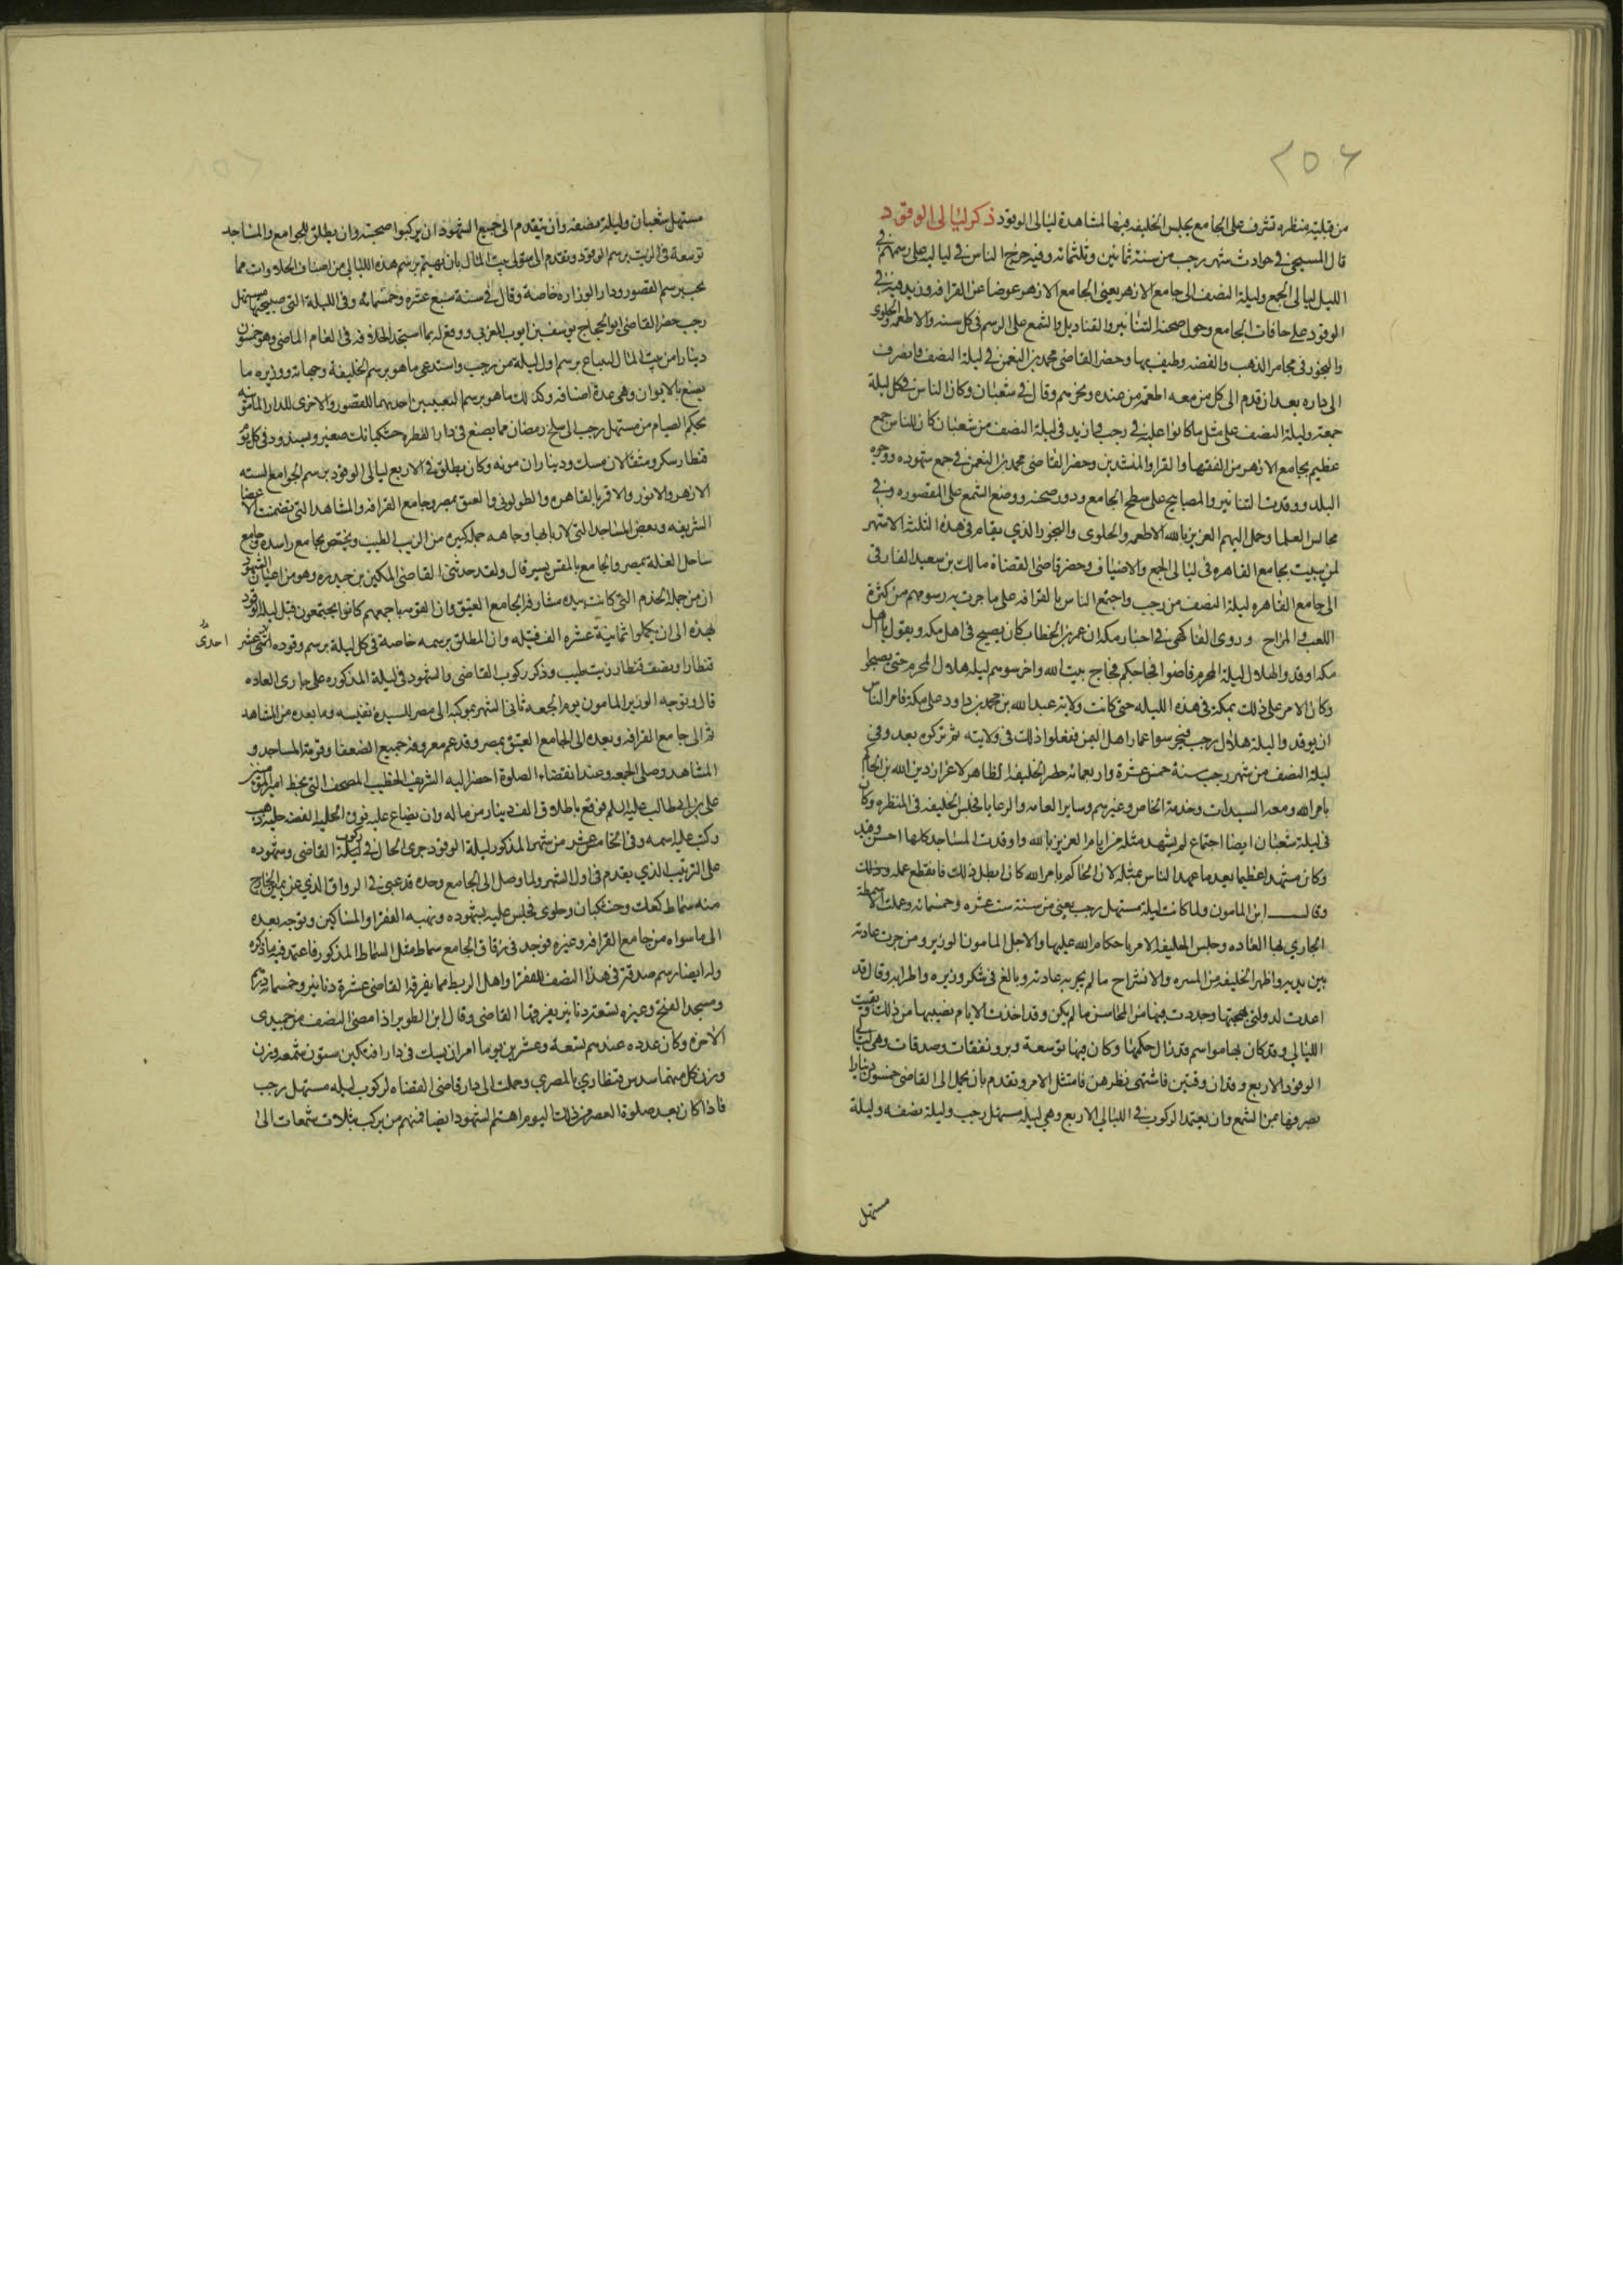 ٢٥٦
من قبليه منظره تشرف على الجامع يجلس الخليفه فيها لمشاهدة ليالى الوقود ذكر ليالى الوقود
قال المسبحى في حوادث شهر رجب من سنة ثمانين وثلثمائه وفيه خرج الناس في لياليه على رسمهم في
الليل ليالى الجمع وليلة النصف الى جامع الازهر يعنى الجامع الازهر عوضا عن القرافه وزيد فيه في
الوقود على حافات الجامع وحول صحنه التنانير والقناديل والشمع على الرسم في كل سنه والاطعمه والحلوى
والبخور في مجامر الذهب والفضه وطيف بها وحضر القاضى محمد بن النعمن في ليلة النصف
الى داره بعد ان قدم الى كل من معه الاطعمه من عنده وبخرهم وقال في شعبان وكان الناس في كل ليلة
جمعه وليلة النصف على مثل ما كانوا عليه في رجب فازيد في ليلة النصف من شعبان كان للناس جمع
عظيم بجامع الازهر من الفقها والقرا والمنشدين وحضر القاضى محمد بن النعمن في جمع شهوده ووجوه
البلد ووقدت التنانير والمصابيح على سطح الجامع ودور صحنه ووضع الشمع على المقصوره وفي
مجالس العلما وحمل اليهم العزيز بالله الاطعمه والحلوى والبخور الذي يقام في هذه الثلثة الاشهر
لمن يبيت بجامع القاهره في ليالى الجمع والاضياف وحضر قاضى القضاة مالك بن سعيد الفارقى
الى جامع القاهره ليلة النصف من رجب واجتمع الناس بالقرافه على ما جرت به رسومهم من كثرة
اللعب والمزاح وروى الفاكهى في اخبار مكه ان عمر بن الخطاب كان يصيح في اهل مكه ويقول ياهل
مكه اوقدوا ليلة هلال المحرم فاضوا فجاجكم لحاج بيت الله واحرسوهم ليله هلال المحرم حتى يصبحوا
وكان الامر على ذلك بمكة في هذه الليله حتى كانت ولاية عبدالله بن محمد بن داود على مكة فامر الناس
ان يوقدوا ليلة هلال رجب فيحرسوا عمار اهل اليمن ففعلوا ذلك في ولايته ثم تركوه بعد وفي
ليلة النصف من شهر رجب سنة خمس عشرة واربعمائه حضر الخليفه الظاهر لاعزاز دين الله بن الحاكم
بامر الله ومعه السيدات وخدمة الخاص وغيرهم وساير العامه والرعايا فجلس الخليفه في المنظره وكان
في ليلة شعبان ايضا اجتماع لم يشهد مثله من ايام العزيز بالله واوقدت المساجد كلها احسن وقيد
وكان مشهدا عظيما بعيد ما عهد الناس بمثله لان الحاكم بامر الله كان ابطل ذلك فانقطع عمله وذلك
وقال ابن المامون ولما كانت ليلة مستهل رجب يعنى من سنة ست عشره وخمسمائه وعملت الاسمطة
الجاري بها العاده وجلس الخليفه الامر باحكام الله عليها والاجل المامون الوزير ومن جرت عادته
بين يديه واظهر الخليفه من المسره والانشراح ما لم يجر به عادته وبالغ في شكر وزيره واطرابه وقال قد
اعدت لدولتى بهجتها وجددت فيها من المحاسن ما لم يكن وقد اخذت الايام نصيبها من ذلك وبقيت
الليالي وقد كان بها مواسم قد زال حكمها وكان فيها توسعة وبر ونفقات وصدقات وهى ليالى
الوقود الاربع وقد ان وقتهن فاشتهى نظرهن فامتثل الامر وتقدم بان يحمل الى القاضى خمسون دينارا
يصرفها من الشمع وان يعتمد الركوب في الليالي الاربع وهي ليله مستهل رجب وليلة نصفه وليلة
مستهل
مستهل شعبان وليلة نصفه وان يتقدم الى جميع الشهود ان يركبوا صحبته وان يطلق للجوامع والمساجد
توسعة في الزيت برسم الوقود وتقدم الى متولى بيت المال بان يهتم برسم هذه الليالى من اصناف الحلاوات مما
يجب برسم القصور ودار الوزاره خاصة وقال في سنة سبع عشره وخمسمائه وفى الليلة التى صبيحتها مستهل
رجب حضر القاضى ابو الحجاج يوسف بن ايوب المغربى ووقع له بما استجد اطلاقه في العام الماضى وهو خمسون
دينارا من بيت المال لابتياع برسم اول ليلة من رجب واستدعى ما هو برسم الخليفة وجهاته ووزيره ما
يصنع بالايوان وهى عدة اصنافه وكذلك ما هو برسم التعبيتين احديهما للقصور والاخرى للدار المامونيه
بحكم الصيام من مستهل رجب الى سلخ رمضان مما يصنع في دار الفطره خشكنانك صغير وبسندود في كل يوم
قنطار سكر ومثقالان مسك وديناران مونه وكان يطلق في الاربع ليالى الوقود برسم الجوامع السته
الازهر والانور والاقمر بالقاهره والطولونى والعتيق بمصر وجامع القرافه والمشاهد التى تضمنت الاعضا
الشريفه وبعض المساجد التى لاربابها وجاهه جمله كبيره من الزيت الطيب ويختص بجامع راشده وجامع
ساحل الغلة بمصر والجامع بالمقس يسير قال ولقد حدثنى القاضى المكين بن حيدره وهو من اعيان الشهود
ان من جملة الخدم التى كانت بيده مشارفة الجامع العتيق وان القومه باجمعهم كانوا يجتمعون قبل ليلة الوقود
بمده الى ان يكملوا ثمانية عشره الف فتيله وان المطلق برسمه خاصة في كل ليلة برسم وقوده اثنى عشر
احدى
قنطارا ونصف قنطار زيت طيب وذكر ركوب القاضى والشهود في ليلة المذكوره على جارى العاده
قال وتوجه الوزير المامون يوم الجمعه ثانى الشهر بموكبه الى مصر للسيدة نفيسه وما بعده من المشاهد
ثم الى جامع القرافه وبعده الى الجامع العتيق بمصر وقد عم معروفه جميع الضعفا وقومة المساجد و
المشاهد وصلى الجمعه وعند انقضاء الصلوة احضر اليه الشريف الخطيب المصحف التى بخط امير المؤمنين
على بن ابى طالب عليه السلم فوقع باطلاق الف دينار من ماله وان يضاع عليه فوق الحليه الفضه حليه ذهب
وكتب عليه اسمه وفى الخامس عشر من شهر المذكور ليلة الوقود جرى الحال في ركوب ليلة القاضى وشهوده
على الترتيب الذي يقدم في اول الشهر ولما وصل الى الجامع وحده قد عبى في الرواق الذي عن يمين الخارج
منه سماط كعك وخشكنان وحلوى فجلس عليه بشهوده ونهبه الفقرا والمساكين وتوجه بعده
الى ما سواه من جامع القرافه وغيره فوجد في رواق الجامع سماط مثل السماط المذكور فاعتمد فيه ما ذكره
وله ايضا رسم صدقة في هذا النصف للفقرا واهل الربط مما يفرقه القاضى عشرة دنانير وخمسمائه درهم
ومسجد الفتح وغيره لسته دنانير يفرقها القاضى وقال ابن الطوير اذا مضى النصف من جمادى
الاخره وكان عدده عندهم تسعة وعشرين يوما امر ان يسبك في دار افتكين ستون شمعه وزن
وزن كل منهما سدس قنطار بالمصري وحملت الى دار قاضى القضاه لركوب ليله مستهل رجب
فاذا كان بعد صلوة العصر من ذلك اليوم اهتم الشهود ايضا فمنهم من يركب بثلاث شمعات الى